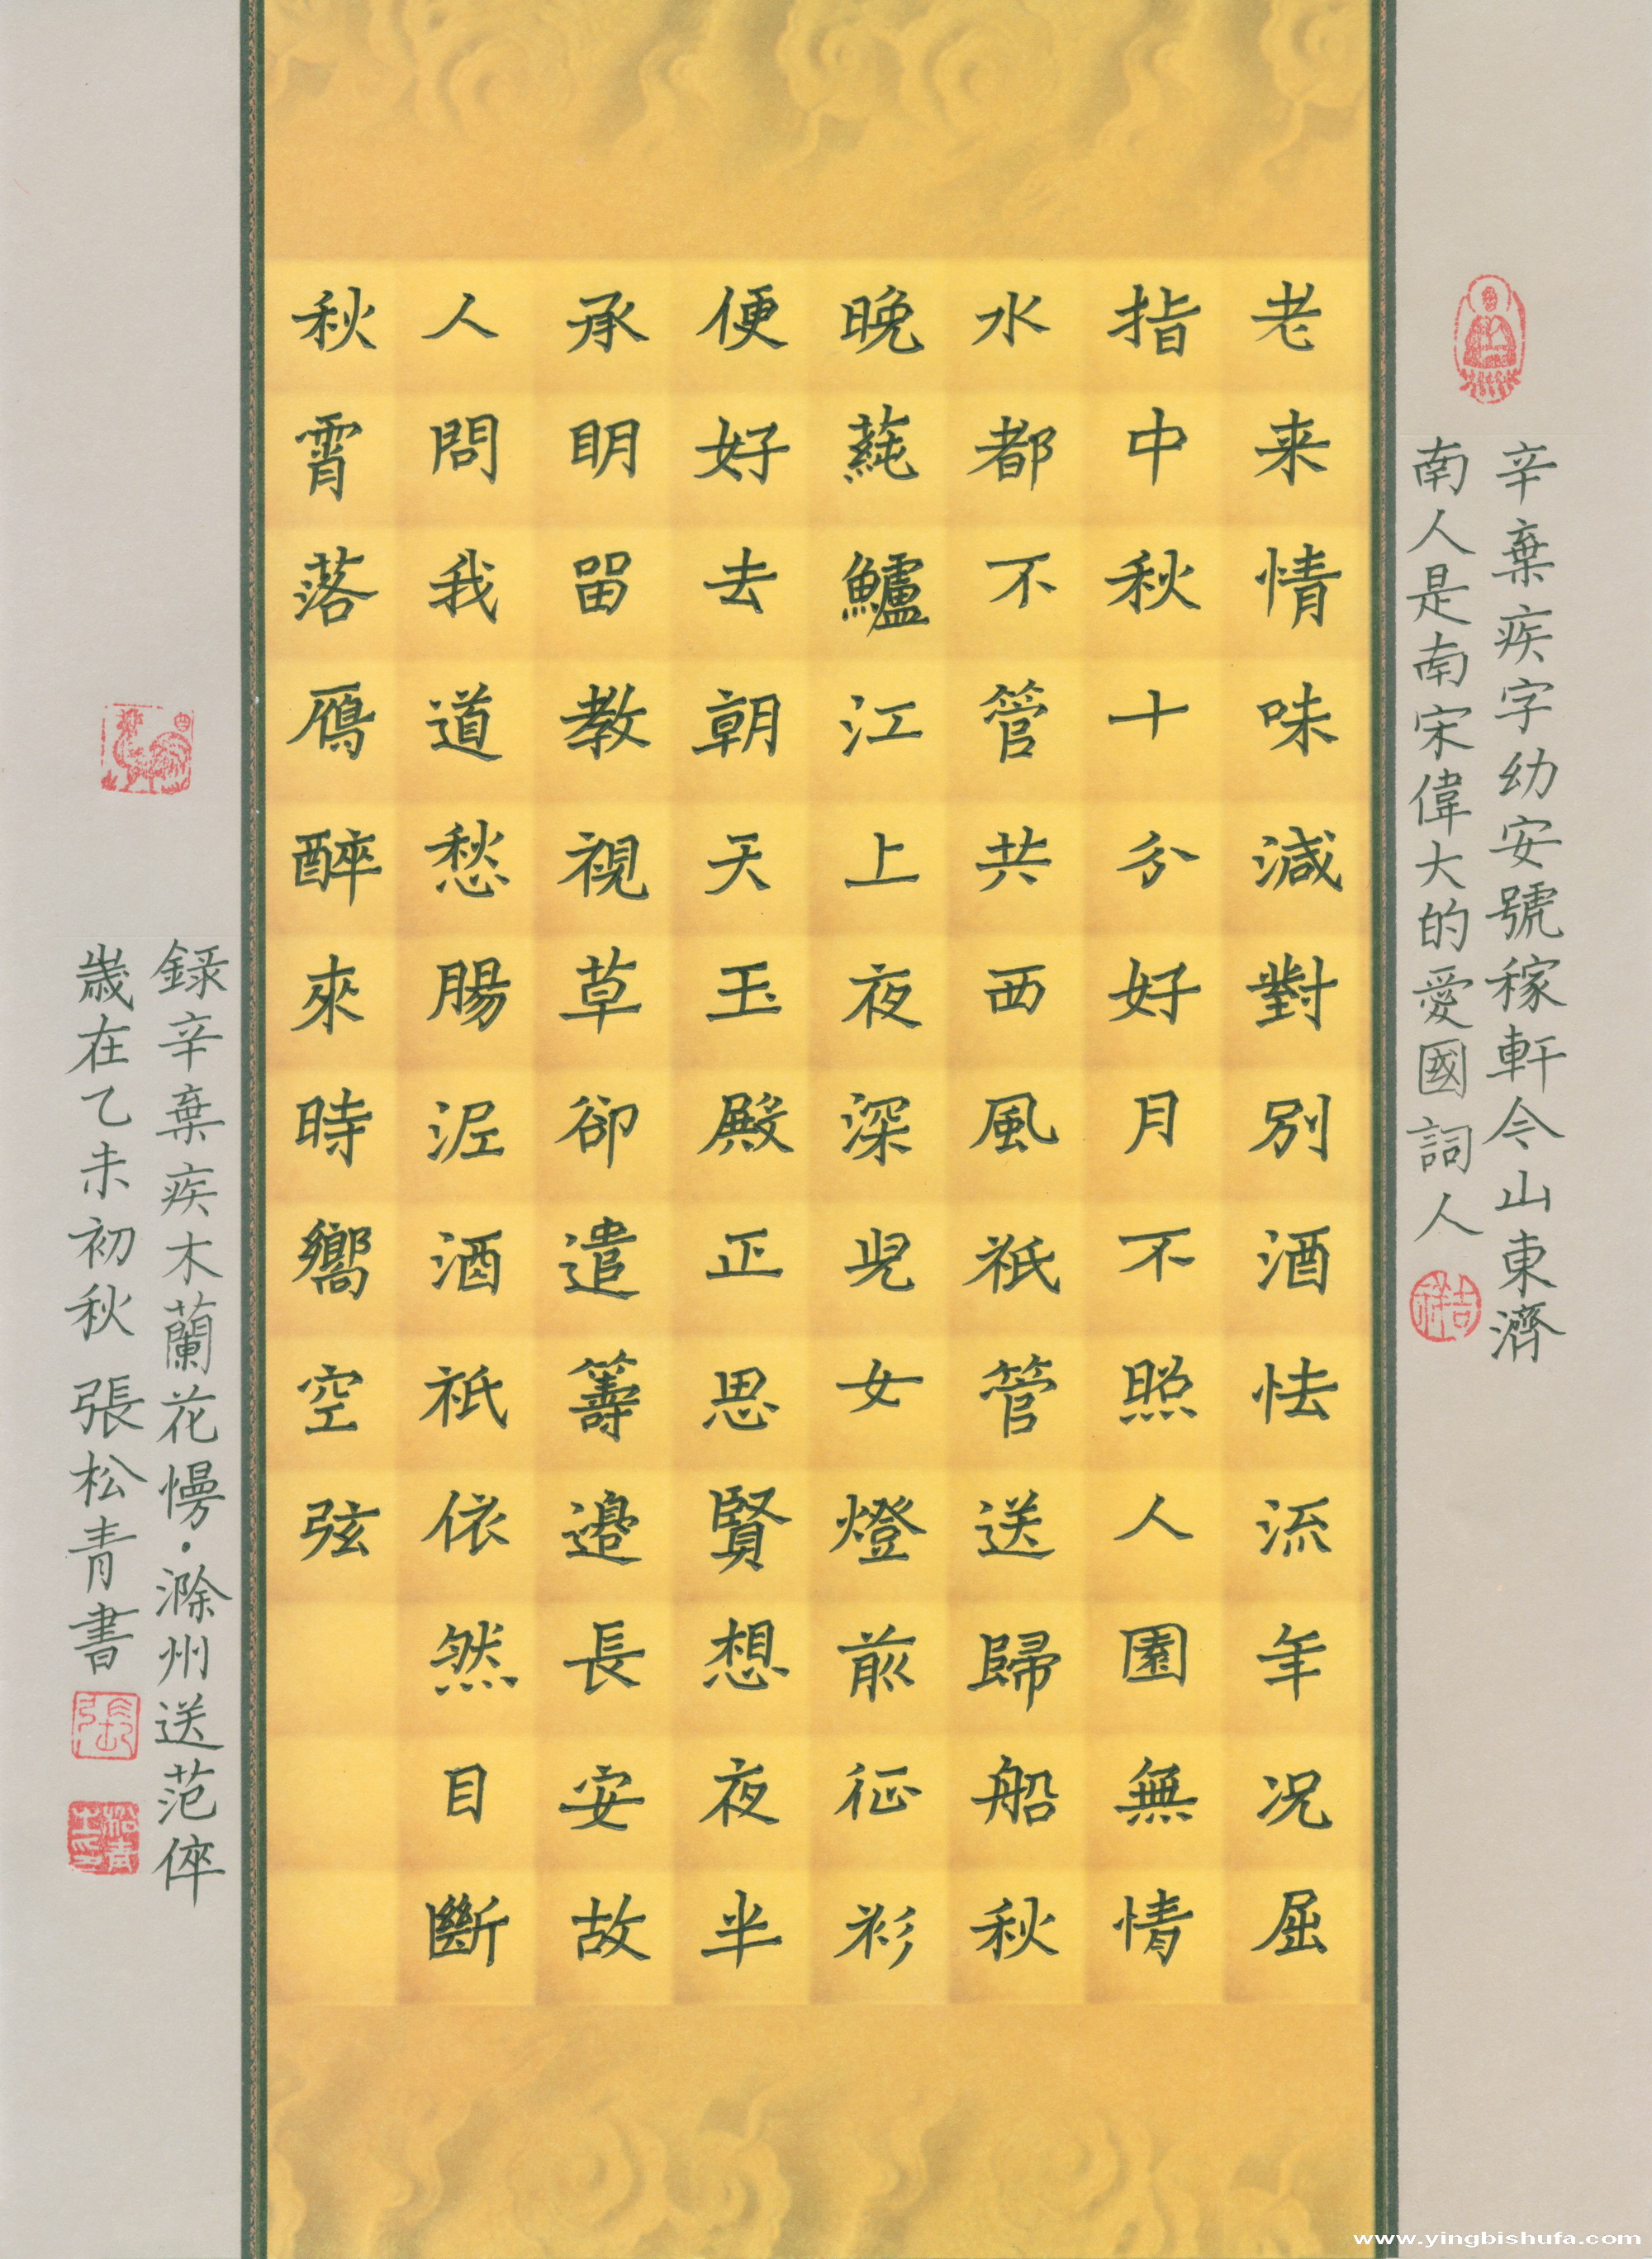 辛棄疾字幼安號稼軒今山東濟
南人是南宋偉大的愛國詞人
吉祥
老来情味減對別酒怯流年况屈
指中秋十分好月不照人圓無情
水都不管共西風祇管送歸船秋
晚蓴鱸江上夜深兒女燈前征衫
便好去朝天玉殿正思賢想夜半
承明留教視草卻遣籌邊長安故
人問我道愁腸泥酒祇依然目斷
秋霄落鴈醉來時響空弦
錄辛棄疾木蘭花慢·滁州送范倅
歲在乙未初秋 張松青書
張
www.yingbishufa.com